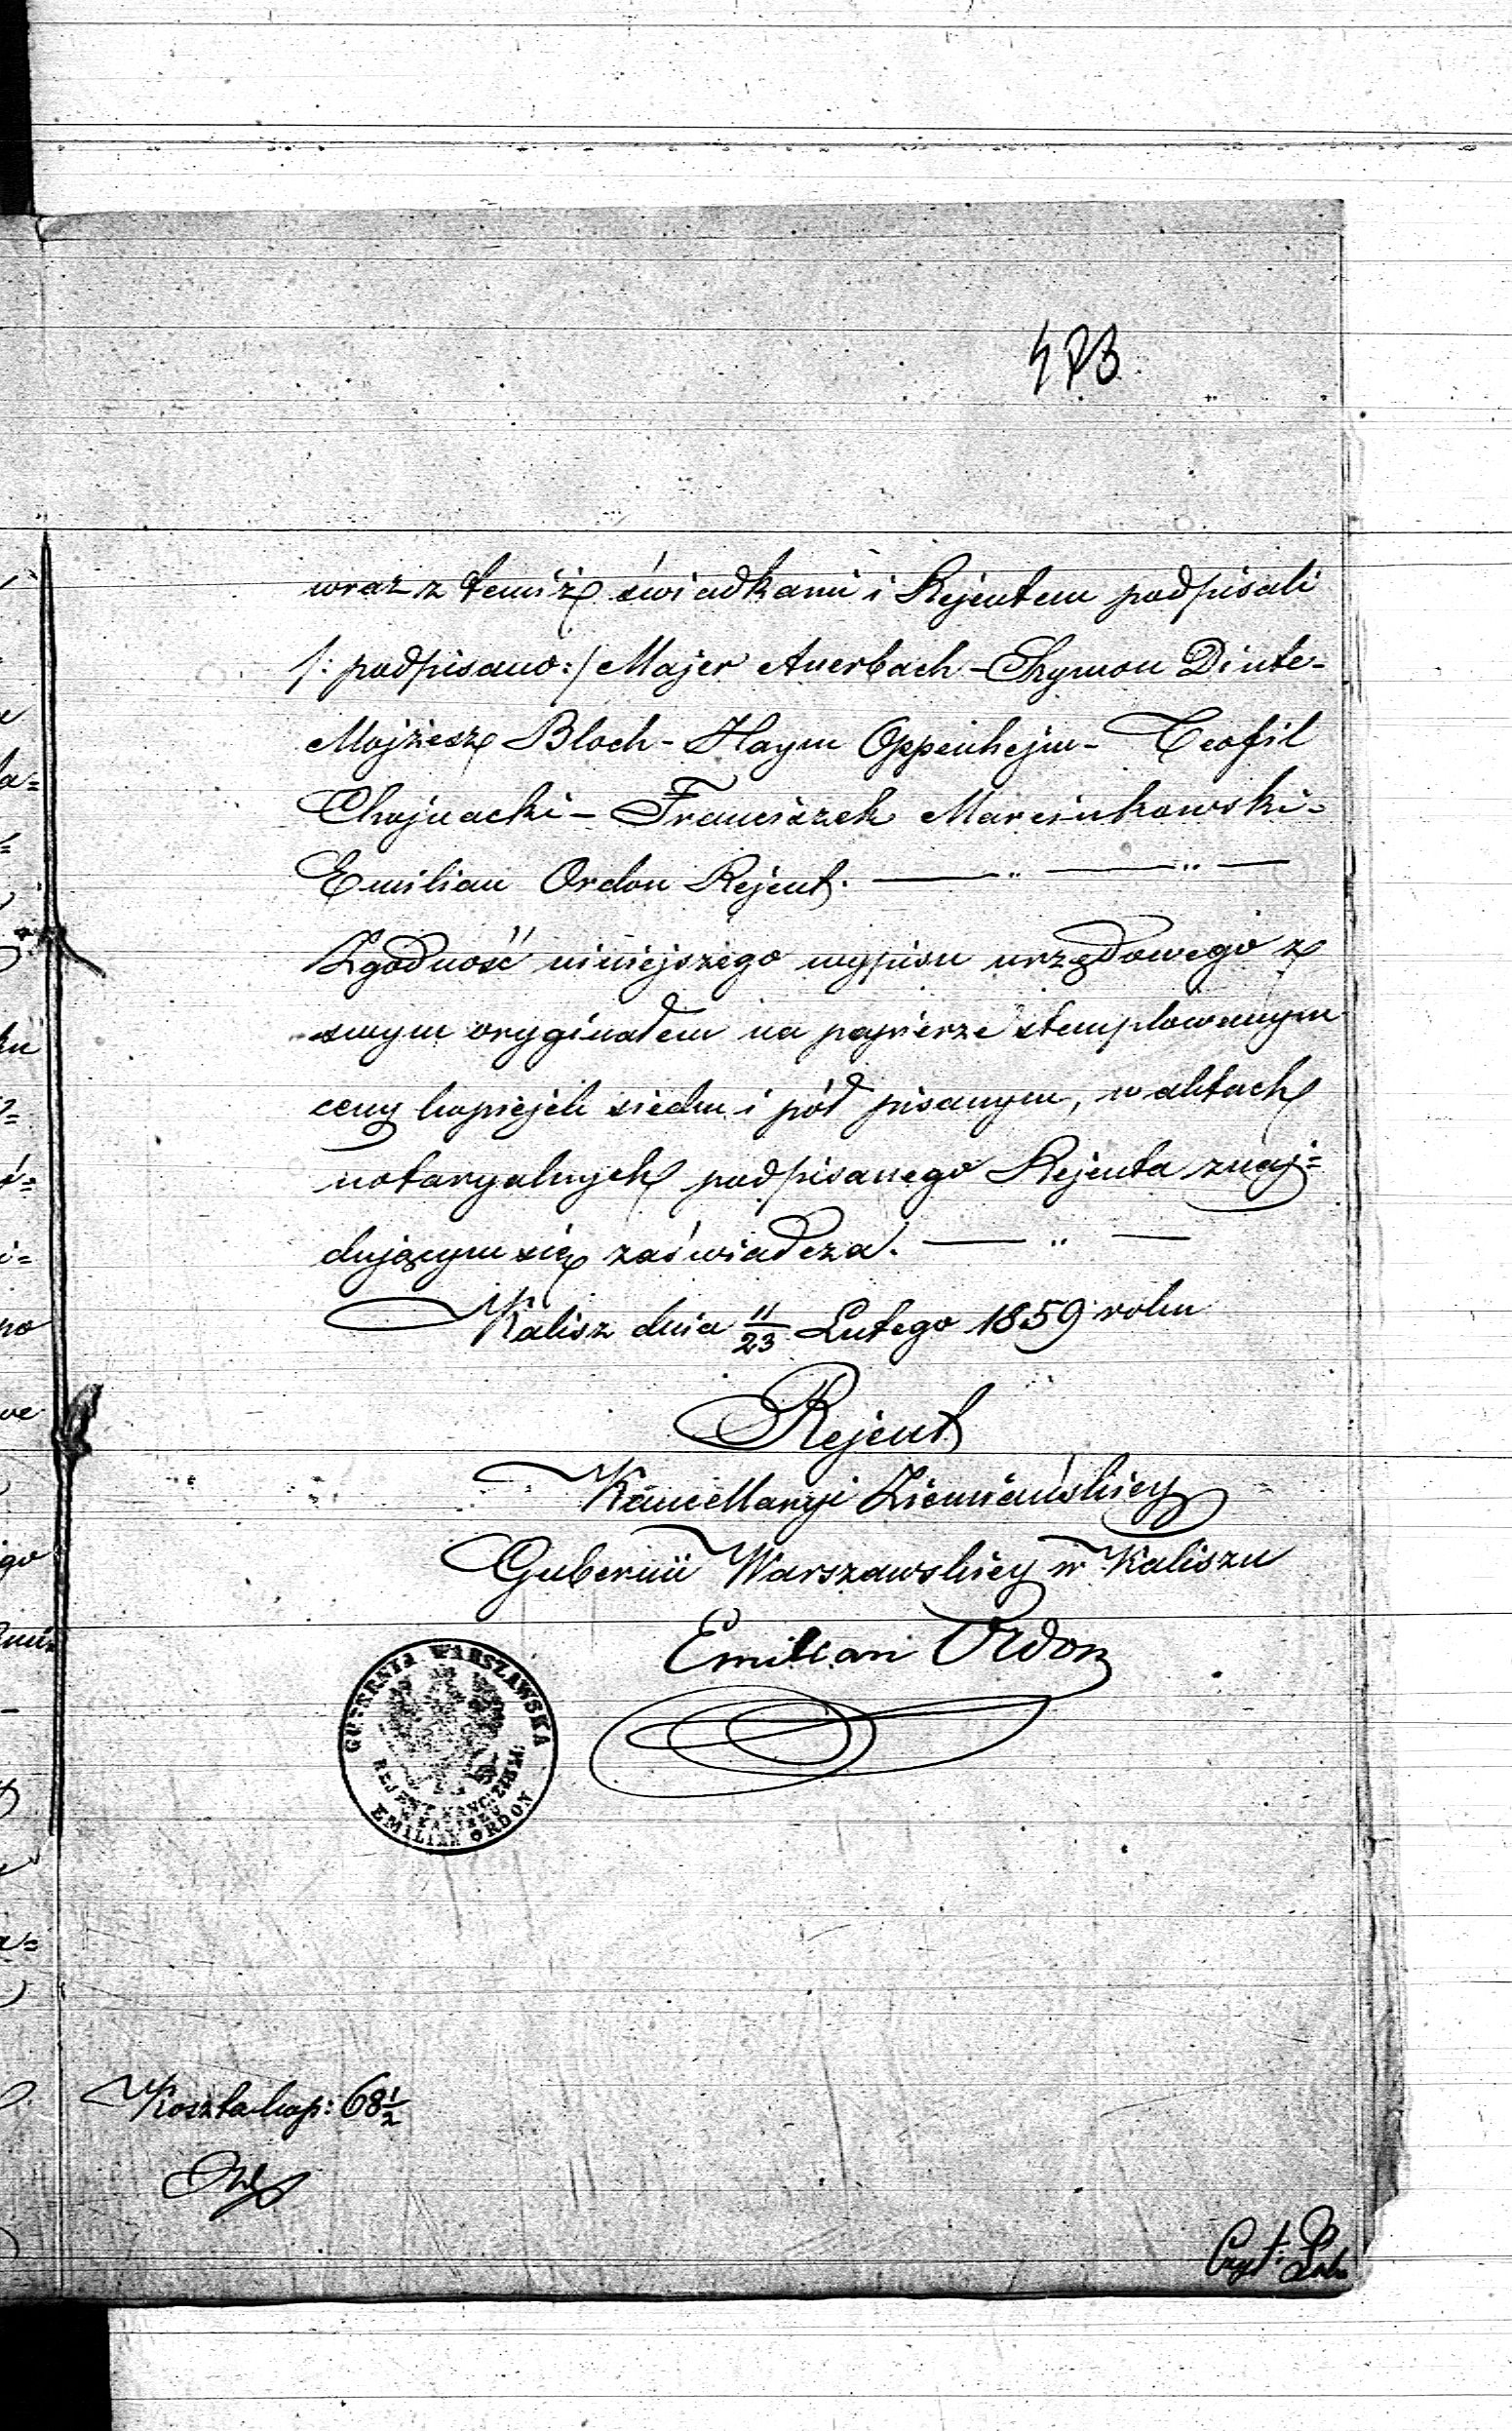 473
wraz z temiż świadkami i Rejentem podpisali
/: podpisano :/ Majer Auerbach - Szymon Dinte -
Mojżesz Bloch - Haym Oppenhejm - Teofil
Chojnacki - Franciszek Marcinkowski -
Emilian Ordon Rejent. — „ — „ —
Zgodność niniejszego wypisu urzędowego z
swym oryginałem na papierze stemplowanym
ceny kopiejek siedm i pół pisanym, w aktach
notaryalnych podpisanego Rejenta znaj=
dującym się zaświadcza. — „ —
Kalisz dnia 11/23 Lutego 1859 roku
Rejent
Kancellaryi Ziemiańskiey
Gubernii Warszawskiey w Kaliszu
Emilian Ordon
GUBERNIA WARSZAWSKA
REJENT KANC: ZIEM:
W KALISZU
EMILIAN ORDON
Koszta kop: 68 1/2
Czyt: